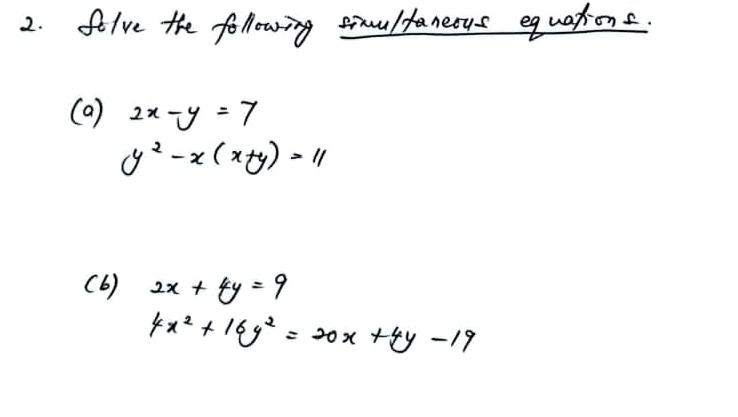 2. Solve the following simultaneous equations.
(a) 2x - y = 7
y² - x(x+y) = 11
(b) 2x + 4y = 9
4x² + 16y² = 20x + 4y - 19